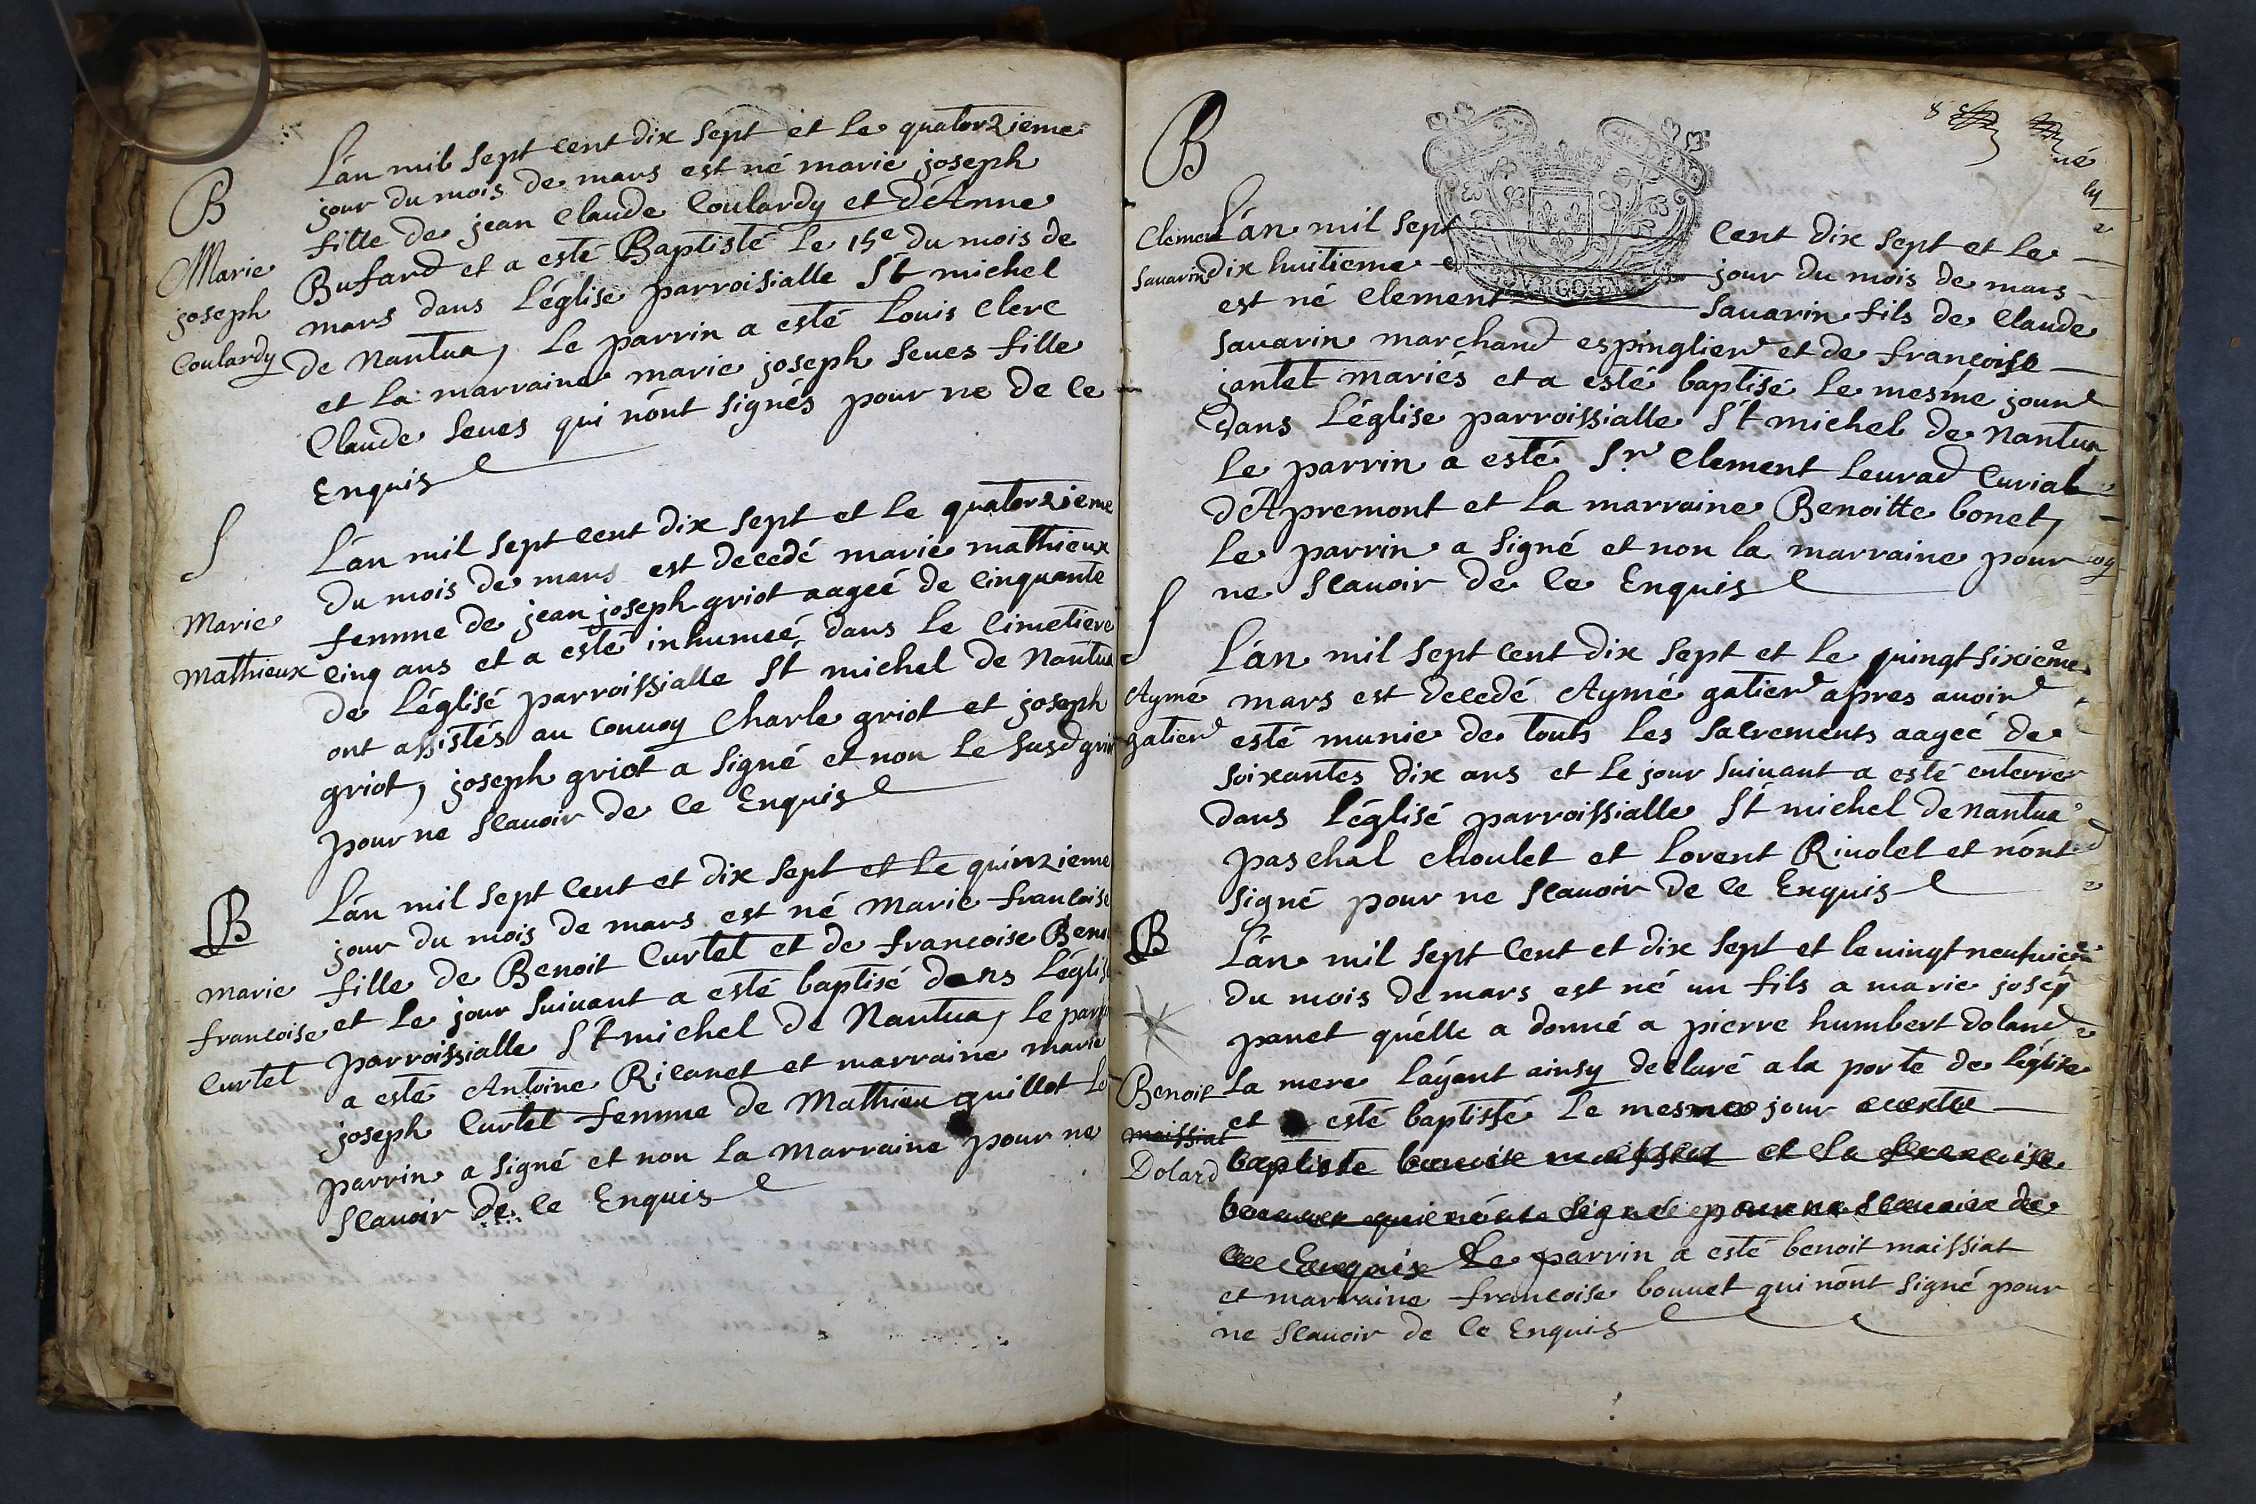 B
Marie
joseph
Coulardy
L'an mil sept cent dix sept et le quatorzieme
jour du mois de mars est né marie joseph
fille de jean Claude Coulardy et d'Anne
Bufard et a esté Baptisté le 15e du mois de
mars dans l'église parroisialle St michel
de Nantua, le parrin a esté Louis Clerc
et la marraine marie joseph seues fille
Claude Seues qui n'ont signés pour ne de ce
Enquis
S
Marie
Mathieux
L'an mil sept cent dix sept et le quatorzieme
du mois de mars est decedé marie mathieux
femme de jean joseph griot aageé de cinquante
cinq ans et a esté inhumeé dans le cimetiere
de l'églisé parroissialle St michel de Nantua
ont assistés au convoy Charle griot et joseph
griot, joseph griot a signé et non le susd griot
pour ne scauoir de ce Enquis
B
Marie
francoise
Curtet
L'an mil sept cent et dix sept et le quinzieme
jour du mois de mars est né Marie francoise
fille de Benoit Curtet et de francoise
et le jour suiuant a esté baptisé dans l'église
parroissialle St michel de Nantua, le parrin
a esté Antoine Ricanet et marraine marie
joseph Curtet femme de Mathieu quillot le
parrin a signé et non la Marraine pour ne
scauoir de ce Enquis
8
né
B
Clement
Sauarin
L'an mil sept cent dix sept et le
dix huitieme jour du mois de mars
BOVRGOGNE
est né Clement Sauarin fils de Claude
Sauarin marchand espinglier et de francoise
jantet mariés et a esté baptisé le mesme jour
dans l'église parroissialle St michel de Nantua
le parrin a esté Sr Clement Leurad Curial
d'Apremont et la marraine Benoitte bonet,
le parrin a signé et non la marraine pour
ne scauoir de ce Enquis
S
Aymé
gatier
L'an mil sept cent dix sept et le vingt sixieme
mars est decedé Aymé gatier apres auoir
esté munie de touts les sacrements aageé de
soixantes dix ans et le jour suiuant a esté enterrer
dans l'églisé parroissialle St michel de nantua
paschal choulet et Lorent Riuolet et n'ont
signé pour ne scauoir de ce Enquis
B
Benoit
maissiat
Dolard
L'an mil sept cent et dix sept et le uingt neufuieme
du mois de mars est né un fils a marie joseph
panet qu'elle a donné a pierre humbert dolard
la mere l'ayant ainsy declaré a la porte de l'église
et a esté baptissé le mesme jour
baptiste benoit maissiat et la francoise
bouuet qui n'ont signé pour ne scauoir de
ce Enquis le parrin a esté benoit maissiat
et marraine francoise bouuet qui n'ont signé pour
ne scauoir de ce Enquis